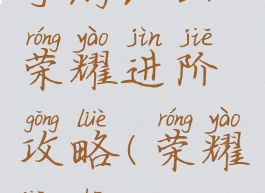 róng yào jìn jiē
荣耀进阶
gōng lüè róng yào
攻略(荣耀